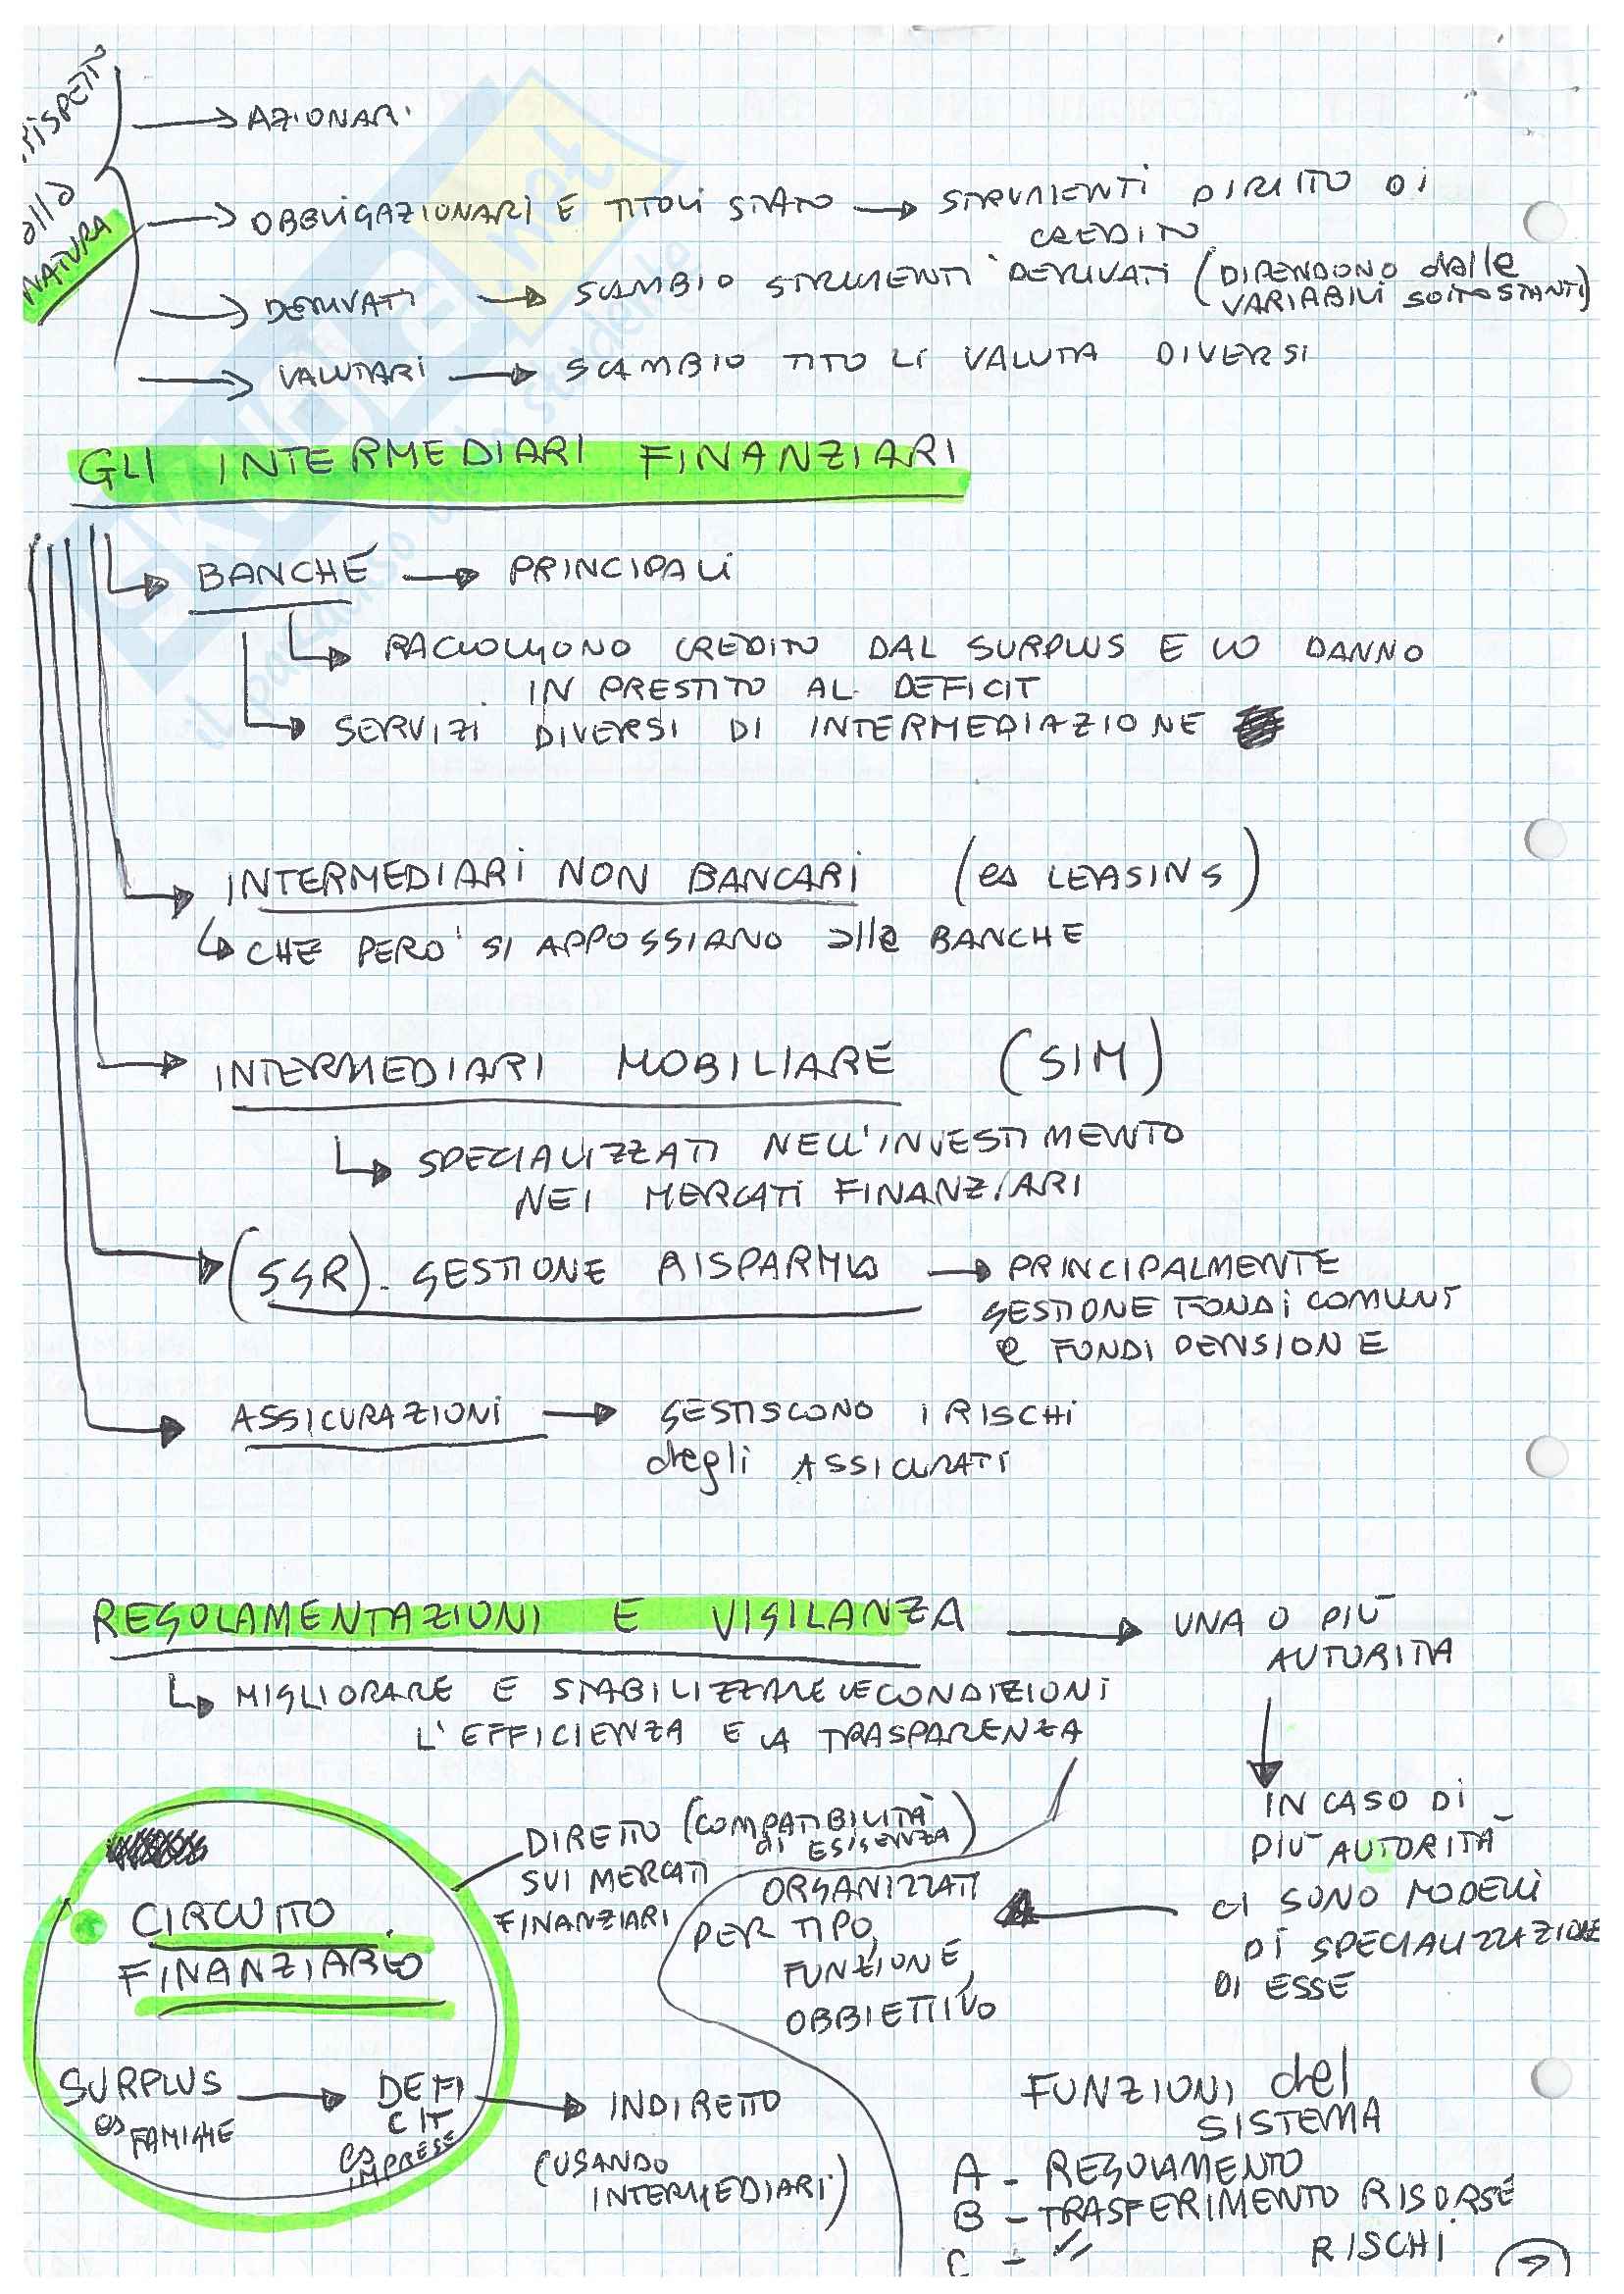 RISPETTO
alla
NATURA
→ AZIONARI
→ OBBLIGAZIONARI E TITOLI STATO → STRUMENTI DIRITTO DI
CREDITO
→ DERIVATI → SCAMBIO STRUMENTI DERIVATI (DIPENDONO dalle
VARIABILI SOTTOSTANTI)
→ VALUTARI → SCAMBIO TITOLI VALUTA DIVERSI
GLI INTERMEDIARI FINANZIARI
BANCHE → PRINCIPALI
RACCOLGONO CREDITO DAL SURPLUS E LO DANNO
IN PRESTITO AL DEFICIT
SERVIZI DIVERSI DI INTERMEDIAZIONE
INTERMEDIARI NON BANCARI (es LEASING)
CHE PERO' SI APPOGGIANO alle BANCHE
INTERMEDIARI MOBILIARE (SIM)
SPECIALIZZATI NELL'INVESTIMENTO
NEI MERCATI FINANZIARI
(SGR). GESTIONE RISPARMIO → PRINCIPALMENTE
GESTIONE FONDI COMUNI
e FONDI PENSIONE
ASSICURAZIONI → GESTISCONO I RISCHI
degli ASSICURATI
REGOLAMENTAZIONI E VIGILANZA → UNA O PIÙ
AUTORITÀ
MIGLIORARE E STABILIZZARE LE CONDIZIONI
L'EFFICIENZA E LA TRASPARENZA
IN CASO DI
PIÙ AUTORITÀ
CI SONO MODELLI
DI SPECIALIZZAZIONE
DI ESSE
ORGANIZZATI
PER TIPO,
FUNZIONE,
OBBIETTIVO
DIRETTO (COMPATIBILITÀ
di ESIGENZA)
SUI MERCATI
FINANZIARI
CIRCUITO
FINANZIARIO
SURPLUS → DEFI
CIT
es FAMIGLIE
es IMPRESE
→ INDIRETTO
(USANDO
INTERMEDIARI)
FUNZIONI del
SISTEMA
A - REGOLAMENTO
B - TRASFERIMENTO RISORSE
C - 〃 RISCHI